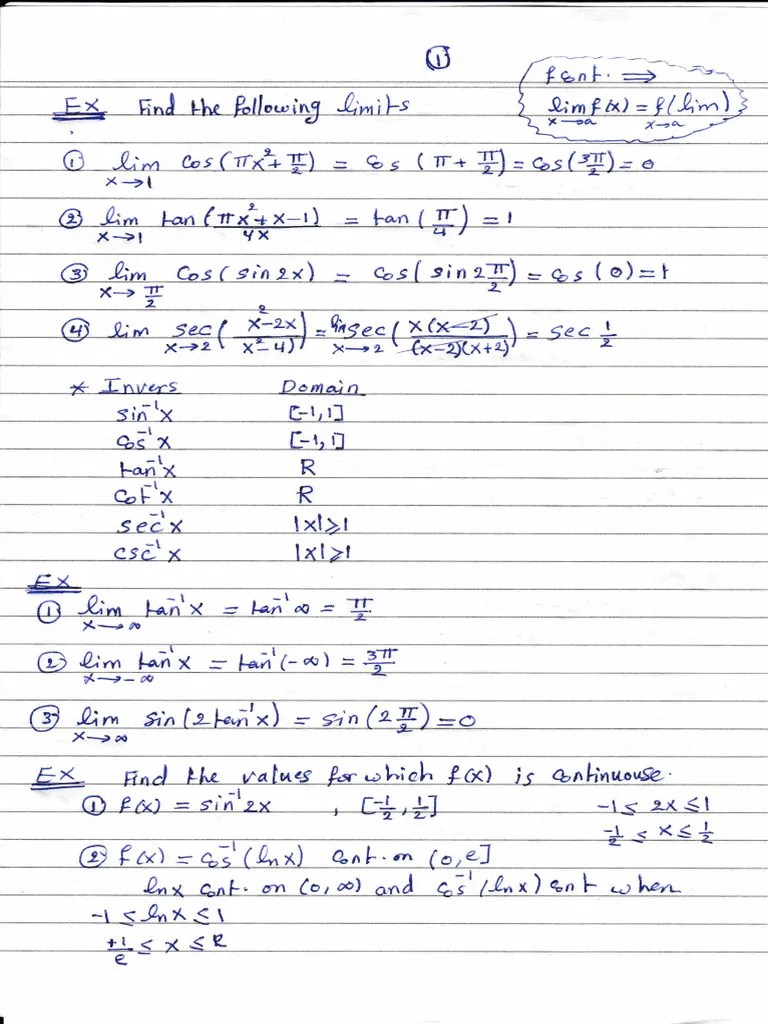 ①
f cont. ⟹
lim f(x) = f(lim)
x→a x→a
Ex Find the following limits
① lim cos(πx² + π/2) = cos (π + π/2) = cos(3π/2) = 0
x→1
② lim tan(πx² + x - 1 / 4x) = tan(π/4) = 1
x→1
③ lim cos(sin 2x) = cos(sin 2 π/2) = cos (0) = 1
x→π/2
④ lim sec(x² - 2x / x² - 4) = lim sec(x(x-2) / (x-2)(x+2)) = sec 1/2
x→2 x→2
* Invers Domain
sin⁻¹x [-1,1]
cos⁻¹x [-1,1]
tan⁻¹x R
cot⁻¹x R
sec⁻¹x |x|≥1
csc⁻¹x |x|≥1
Ex
① lim tan⁻¹x = tan⁻¹∞ = π/2
x→∞
② lim tan⁻¹x = tan⁻¹(-∞) = 3π/2
x→-∞
③ lim sin(2tan⁻¹x) = sin(2 π/2) = 0
x→∞
Ex Find the values for which f(x) is continouse.
① f(x) = sin⁻¹2x , [-1/2, 1/2] -1 ≤ 2x ≤ 1
-1/2 ≤ x ≤ 1/2
② f(x) = cos⁻¹(lnx) cont. on (0,e]
lnx cont. on (0,∞) and cos⁻¹(lnx) cont when
-1 ≤ lnx ≤ 1
+1/e ≤ x ≤ e